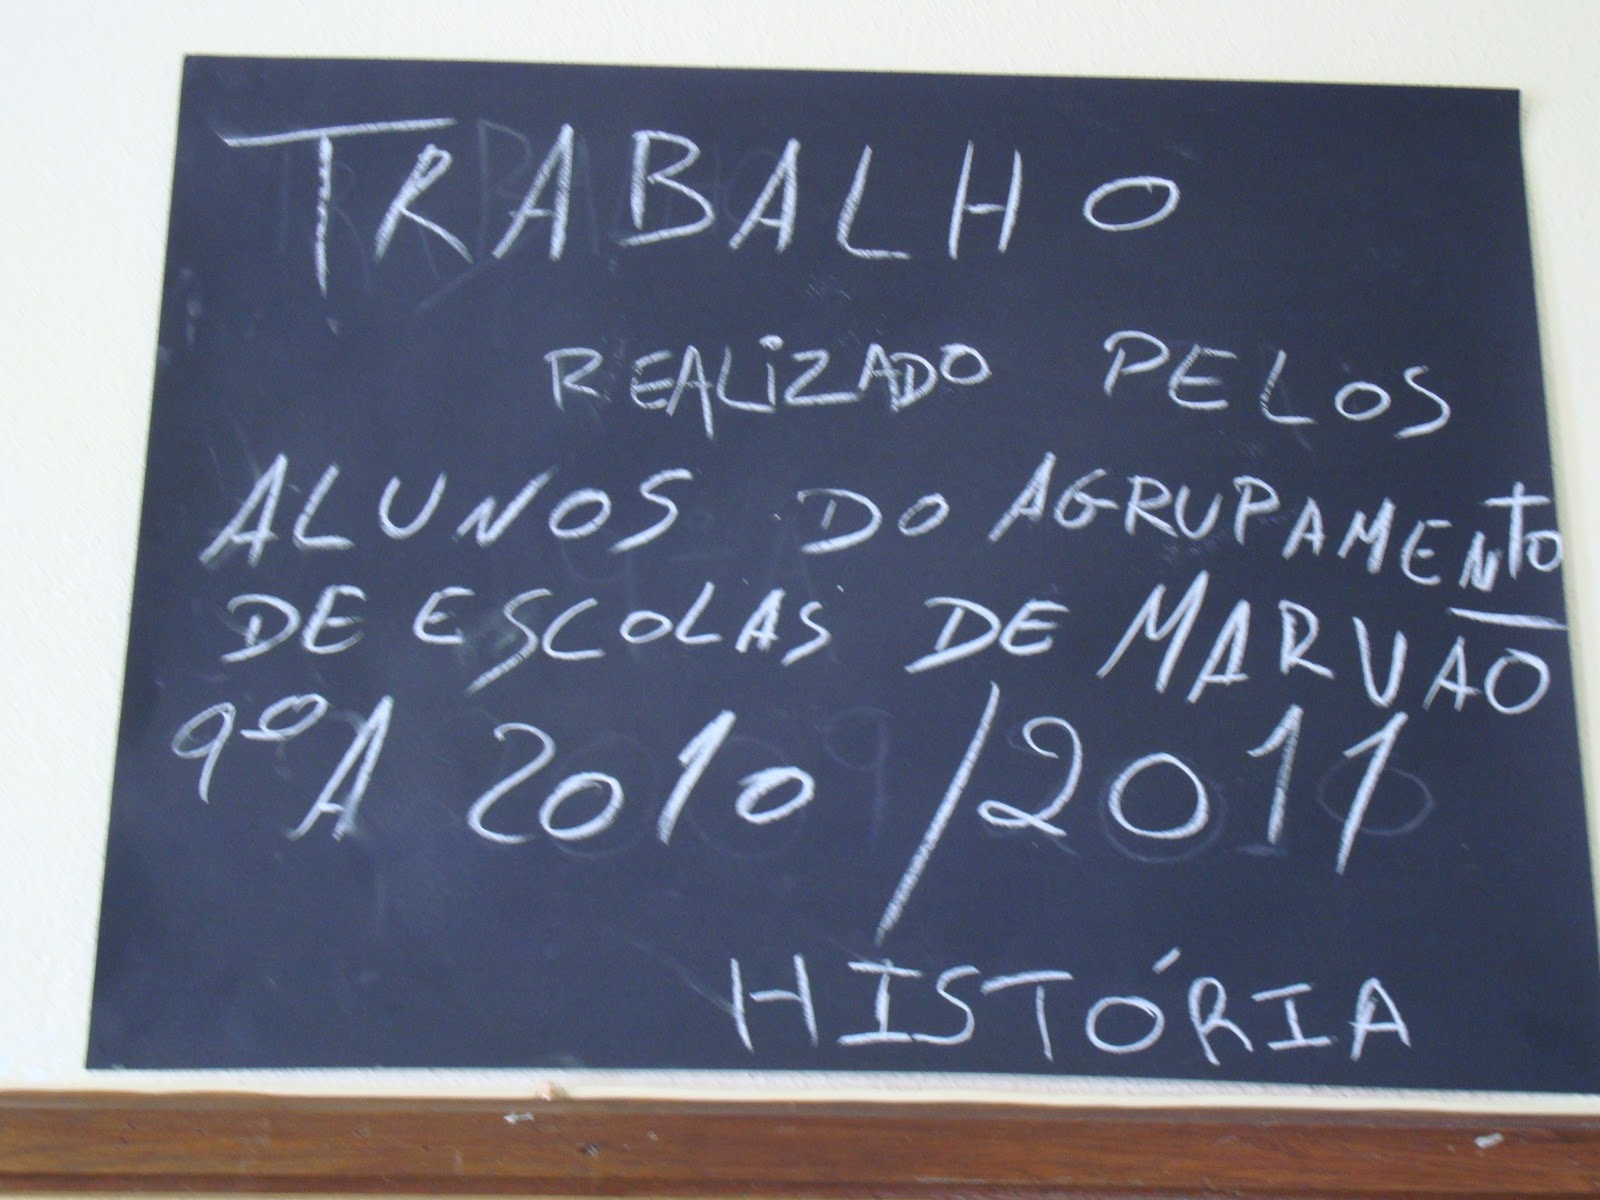 TRABALHO
REALIZADO PELOS
ALUNOS DO AGRUPAMENTO
DE ESCOLAS DE MARVAO
9º A 2010/2011
HISTÓRIA